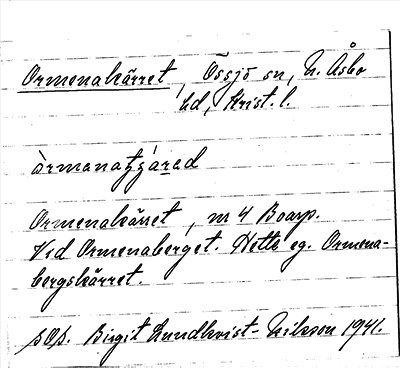 Ormenakärret, Össjö sn, N. Åsbo
hd, Krist. l.
Ormenakärret, nr 4 Boarp.
Vid Ormenaberget. Hette eg. Ormena-
bergskärret.
Birgit Lundkvist-Nilsson 1941.